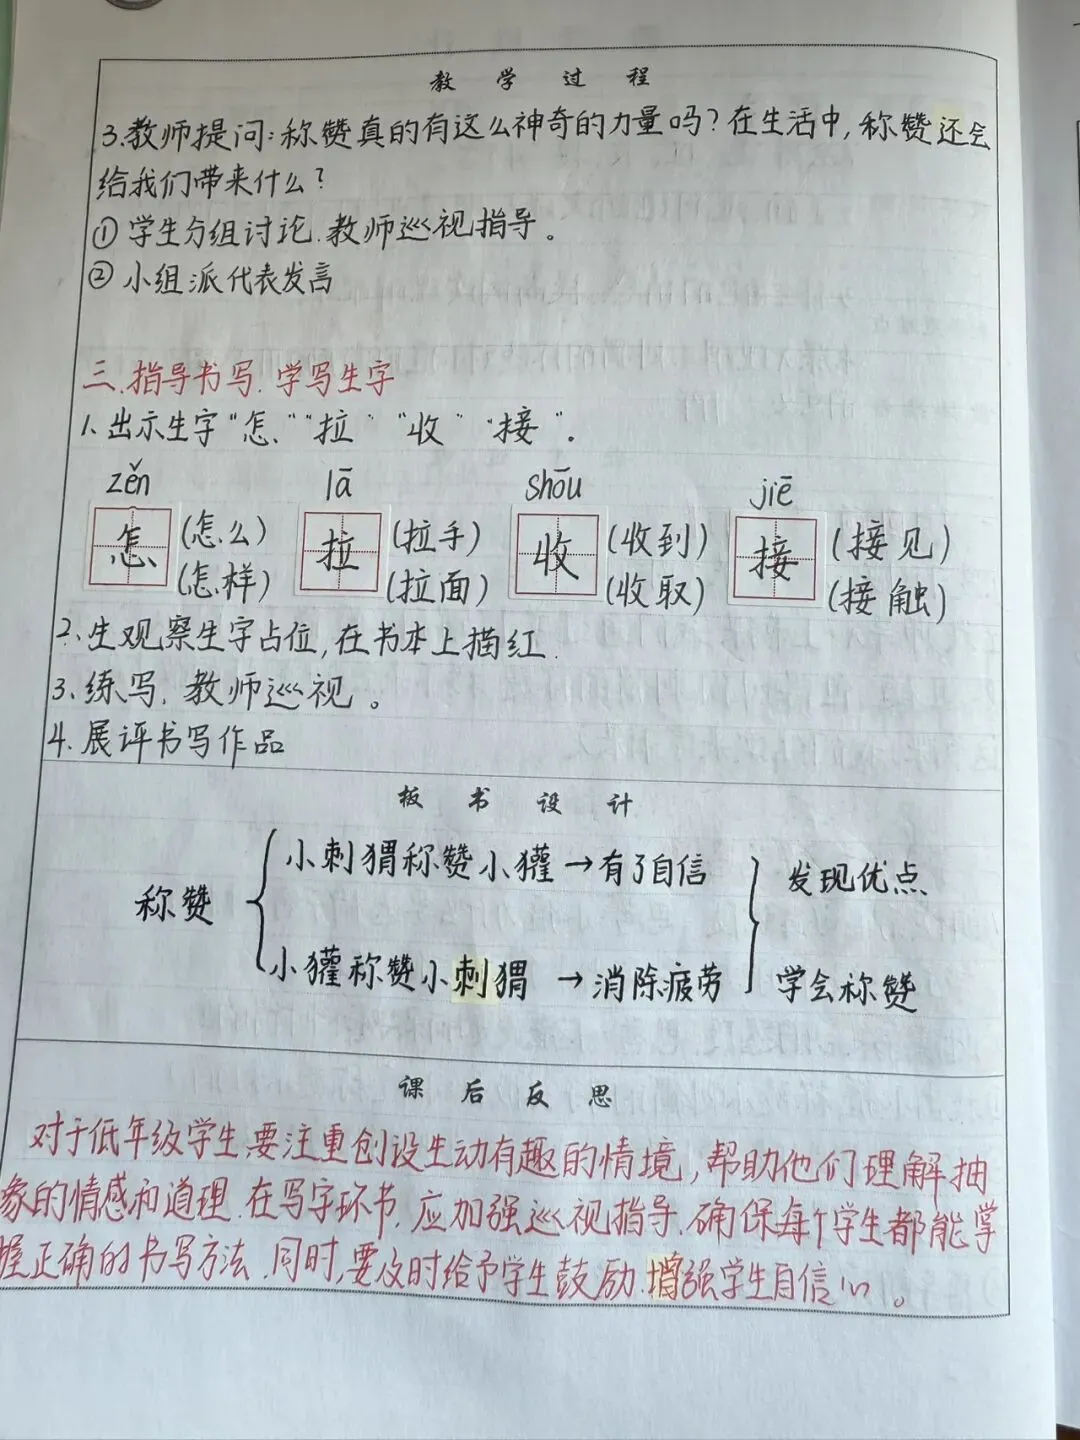 教学过程
3.教师提问:称赞真的有这么神奇的力量吗?在生活中,称赞还会
给我们带来什么?
①学生分组讨论.教师巡视指导。
②小组派代表发言
三.指导书写.学写生字
1、出示生字“怎、”“拉”“收”“接”。
zěn lā shōu jiē
怎 (怎么) 拉 (拉手) 收 (收到) 接 (接见)
(怎样) (拉面) (收取) (接触)
2.生观察生字占位,在书本上描红.
3、练写.教师巡视。
4.展评书写作品
板书设计
小刺猬称赞小獾→有了自信 发现优点
称赞
小獾称赞小刺猬→消除疲劳 学会称赞
课后反思
对于低年级学生,要注重创设生动有趣的情境,帮助他们理解抽
象的情感和道理.在写字环节.应加强巡视指导.确保每个学生都能掌
握正确的书写方法.同时,要及时给予学生鼓励.增强学生自信心。